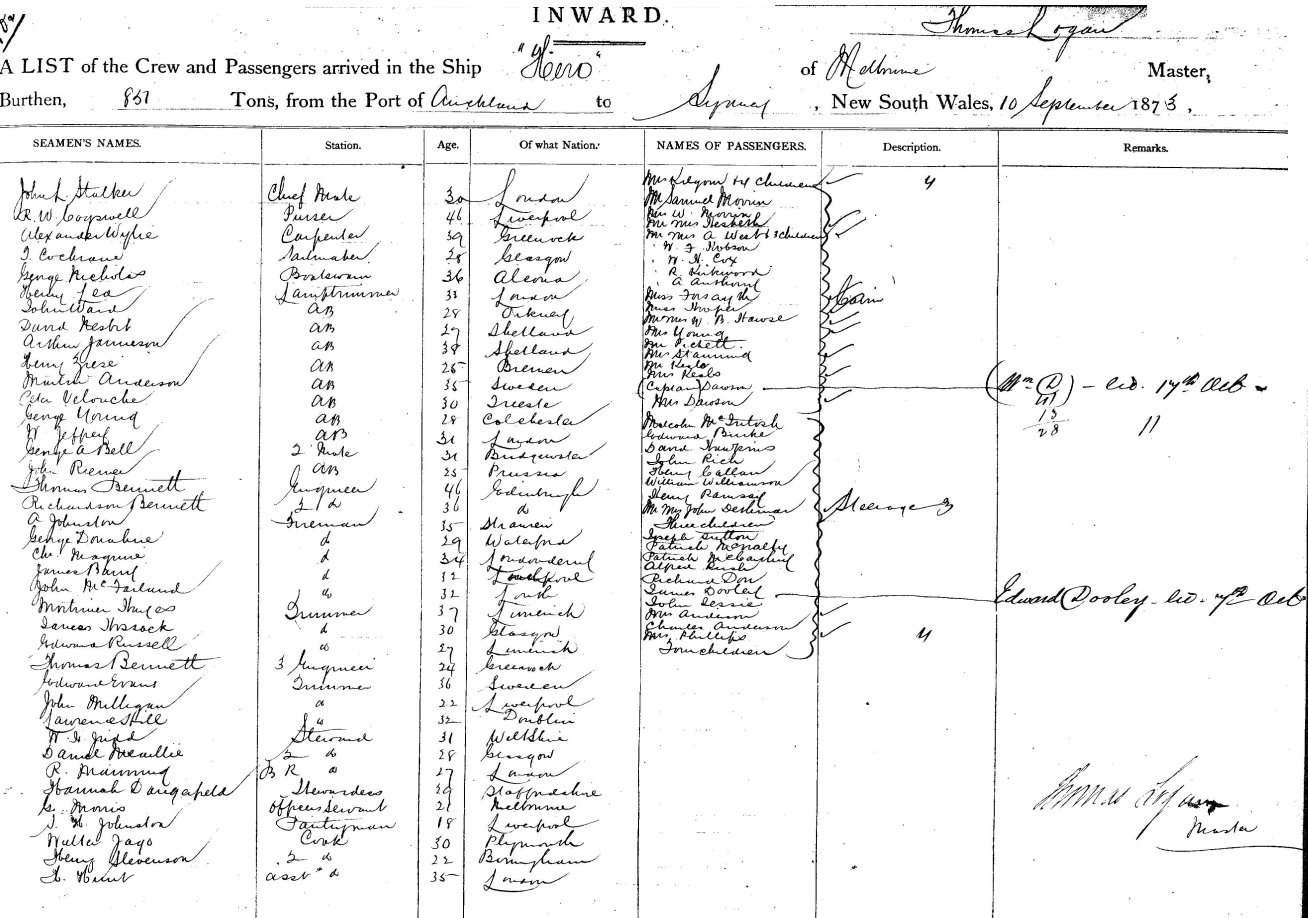 INWARD.
Thomas Logan
A LIST of the Crew and Passengers arrived in the Ship "Hero" of Melbourne Master,
Burthen, 851 Tons, from the Port of Auckland to Sydney, New South Wales, 10 September 1873,
SEAMEN'S NAMES. Station. Age. Of what Nation. NAMES OF PASSENGERS. Description. Remarks.
Mrs Kilgour & 4 children 4
John L Stalker Chief Mate 30 London Mr Samuel Morrin
R. W. Cogswell Purser 46 Liverpool Mrs W. Morrin
Mr Mrs Hesketh
Alexander Wylie Carpenter 39 Greenock Mr Mrs A West & 3 children
T. Cochrane Sailmaker 28 Glasgow " W. F. Robson
" W. H. Cox
George Nicholas Boatswain 36 " R. Kirkwood
" A Anthony
Henry Lea Lamptrimmer 33 London Miss Forsayth Cabin
John Ward AB 28 Orkney Miss Hooper
David Nesbit AB 27 Shetland Mr Mrs W. B. Hawse
Mrs Young
Arthur Jamieson AB 38 Shetland Mr Pickett
Mrs Stanning
Henry AB 26 Bremen Mr
Mrs
Martin Anderson AB 35 Sweden (Captain) Dawson (Wm (D) - 17th Oct
Peter AB 30 Trieste Mrs Dawson
George Young AB 28 Colchester Malcolm McIntosh 13/28 11
W Jeffery AB 31 London Edward Burke
George A Bell 2 Mate 31 Bridgewater David Hawkins
John AB 25 Prussia John Rich
Henry Callan
Thomas Bennett Engineer 46 Edinburgh William Williamson
Henry
Richardson Bennett 2 d 36 d Mr Mrs John Steerage 3
A Johnston Fireman 35 Three children
George Donahue d 29 Waterford Joseph Sutton
Patrick McNally
Chs Maguire d 34 Londonderry Patrick McCarthy
Alfred Rush
James Barry d 32 Liverpool Richard Don
John McFarland d 32 Louth James Dooley Edward (Dooley - 7th Oct
Mortimer Hayes Trimmer 37 Limerick John Jessie
Mrs Anderson
James Hossack d 30 Glasgow Charles Anderson
Edward Russell d 27 Limerick Mrs Phillips 4
Four children
Thomas Bennett 3 Engineer 24 Greenock
Edward Evans Trimmer 36 Sweden
John Milligan d 22 Liverpool
Lawrence Hill d 32 Doublin
W. G. Judd Steward 31 Wiltshire
Daniel 2 d 28 Glasgow
R. Manning B R d 27 London
Hannah Dangerfield Stewardess 39 Staffordshire
G. Morris Officers Servant 21 Melbourne
T. H. Johnston Pantryman 18 Liverpool
Walter Jago Cook 30 Plymouth
Henry Stevenson 2 d 22 Birmingham
H. Hunt asst d 35 London
Thomas Logan
Master